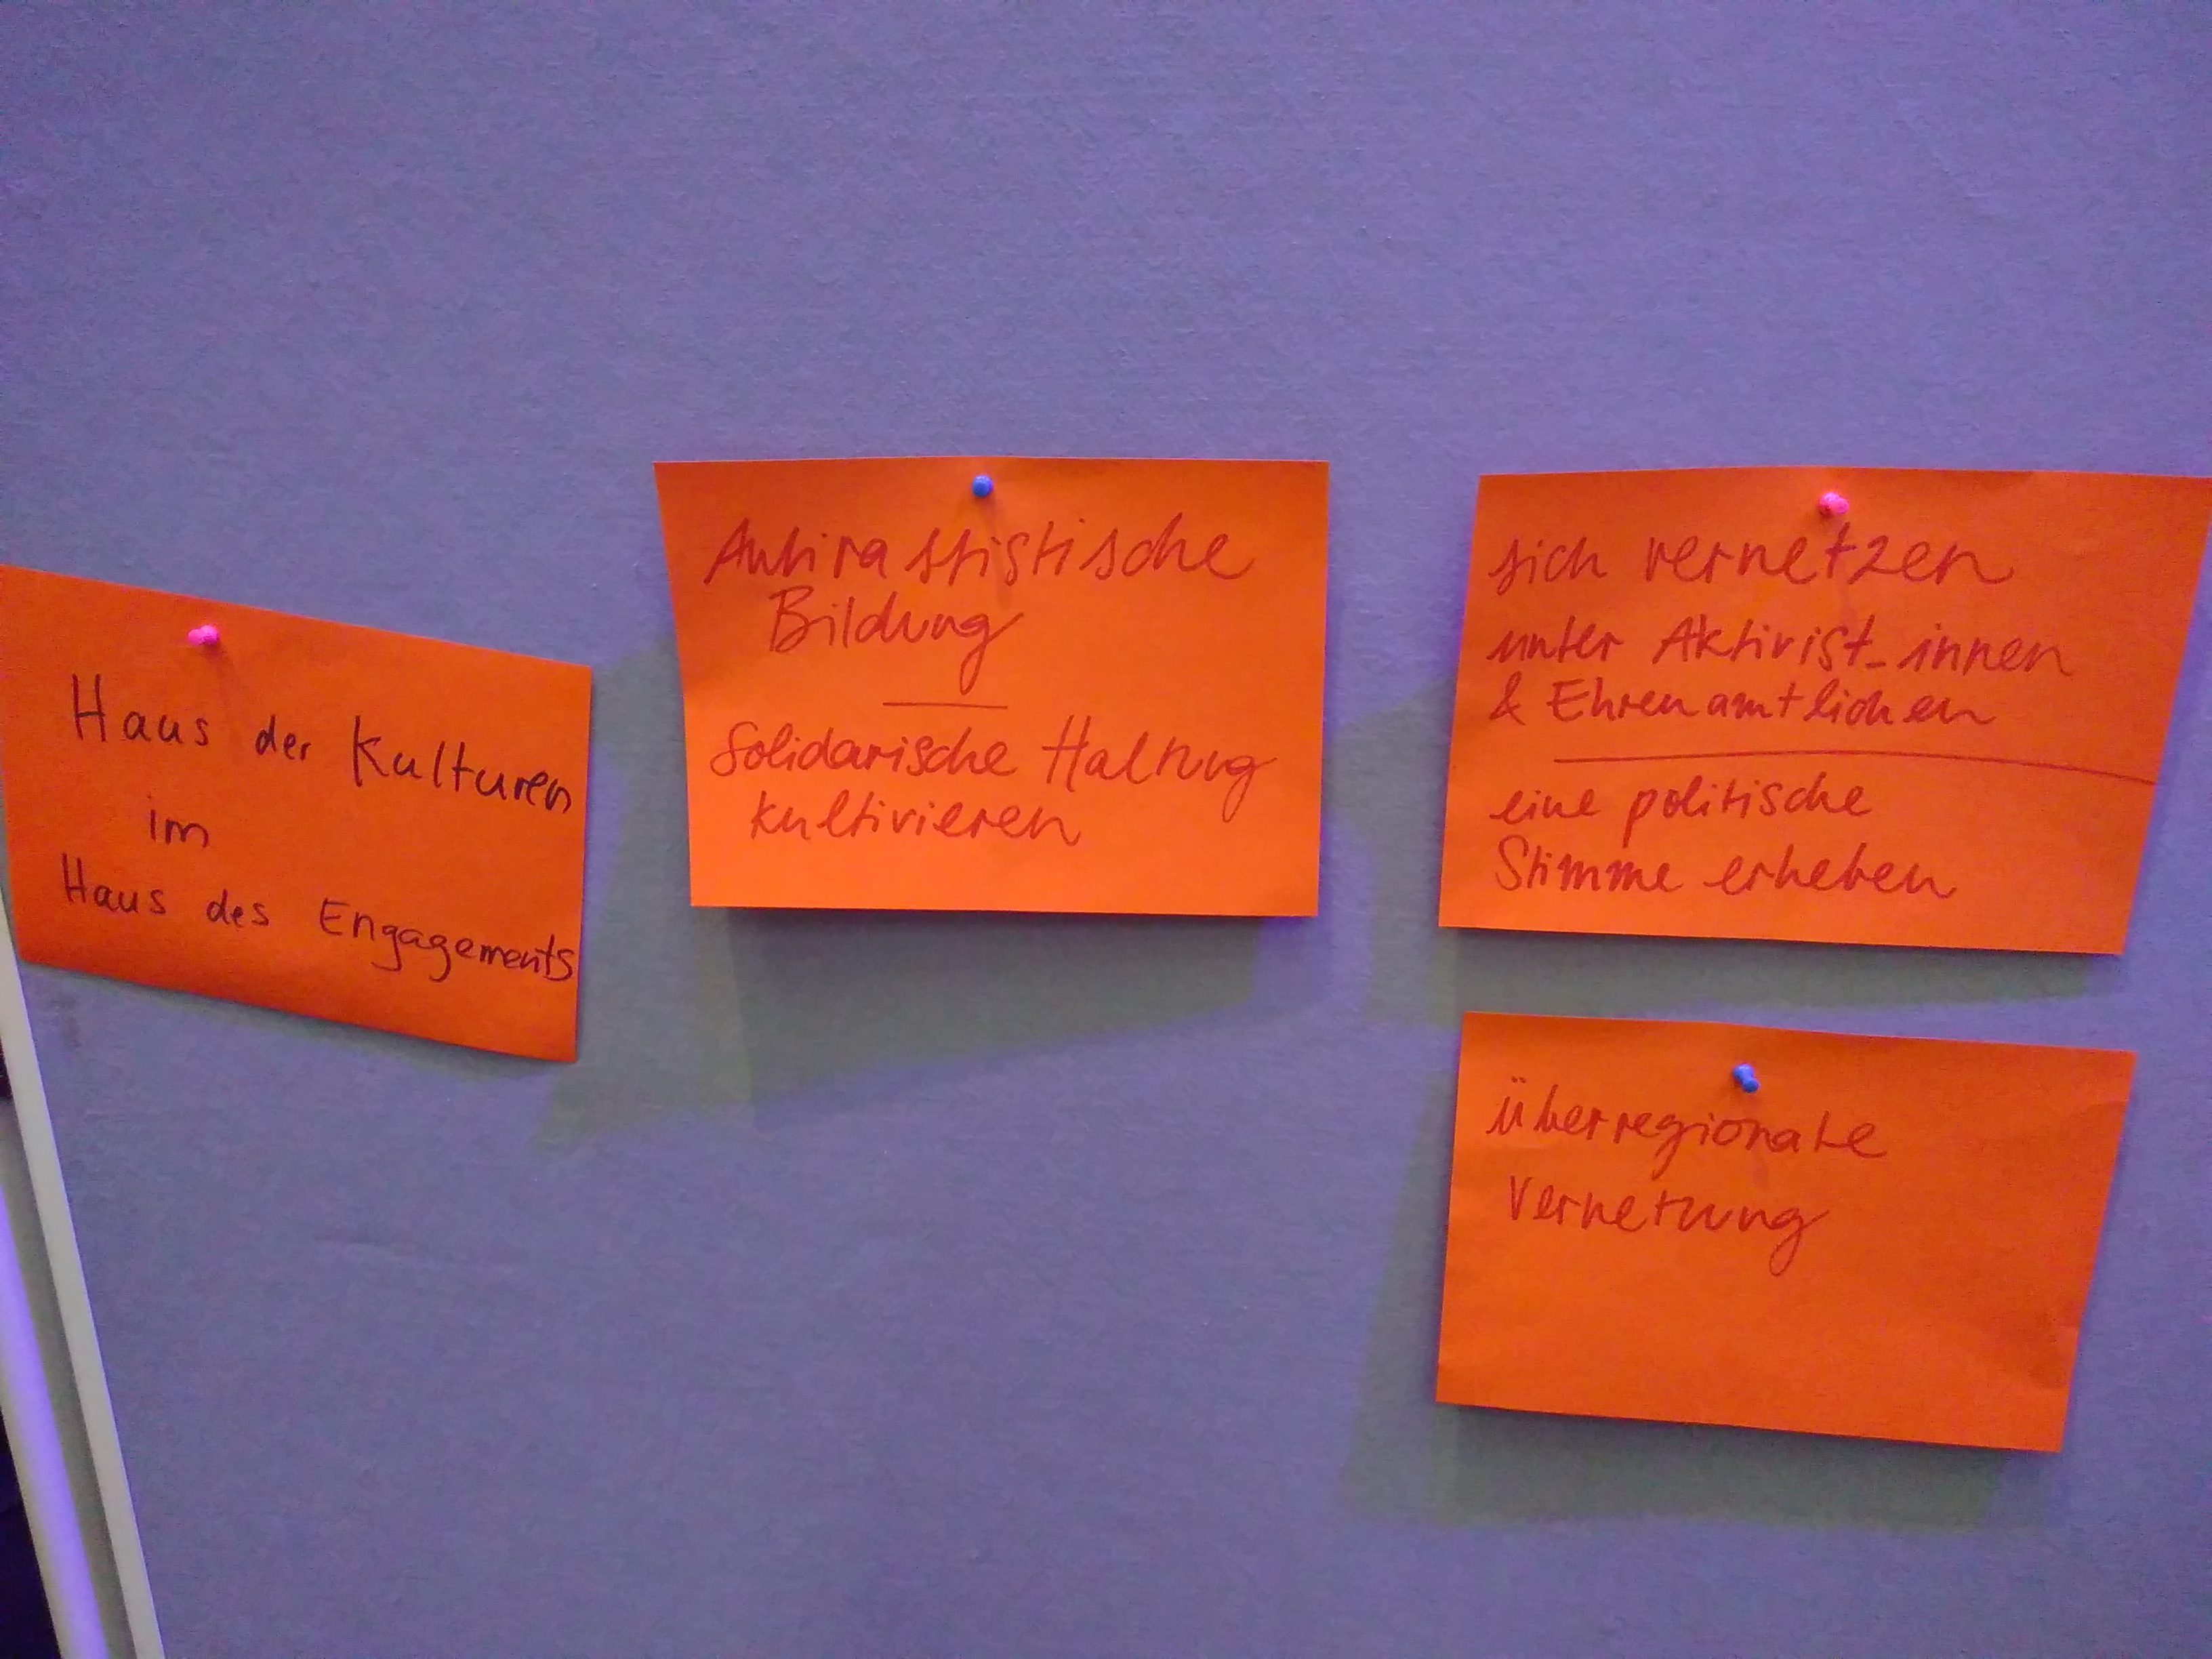 Haus der Kulturen
im
Haus des Engagements
Antirassistische
Bildung
Solidarische Haltung
kultivieren
sich vernetzen
unter Aktivist_innen
& Ehrenamtlichen
eine politische
Stimme erheben
überregionale
Vernetzung